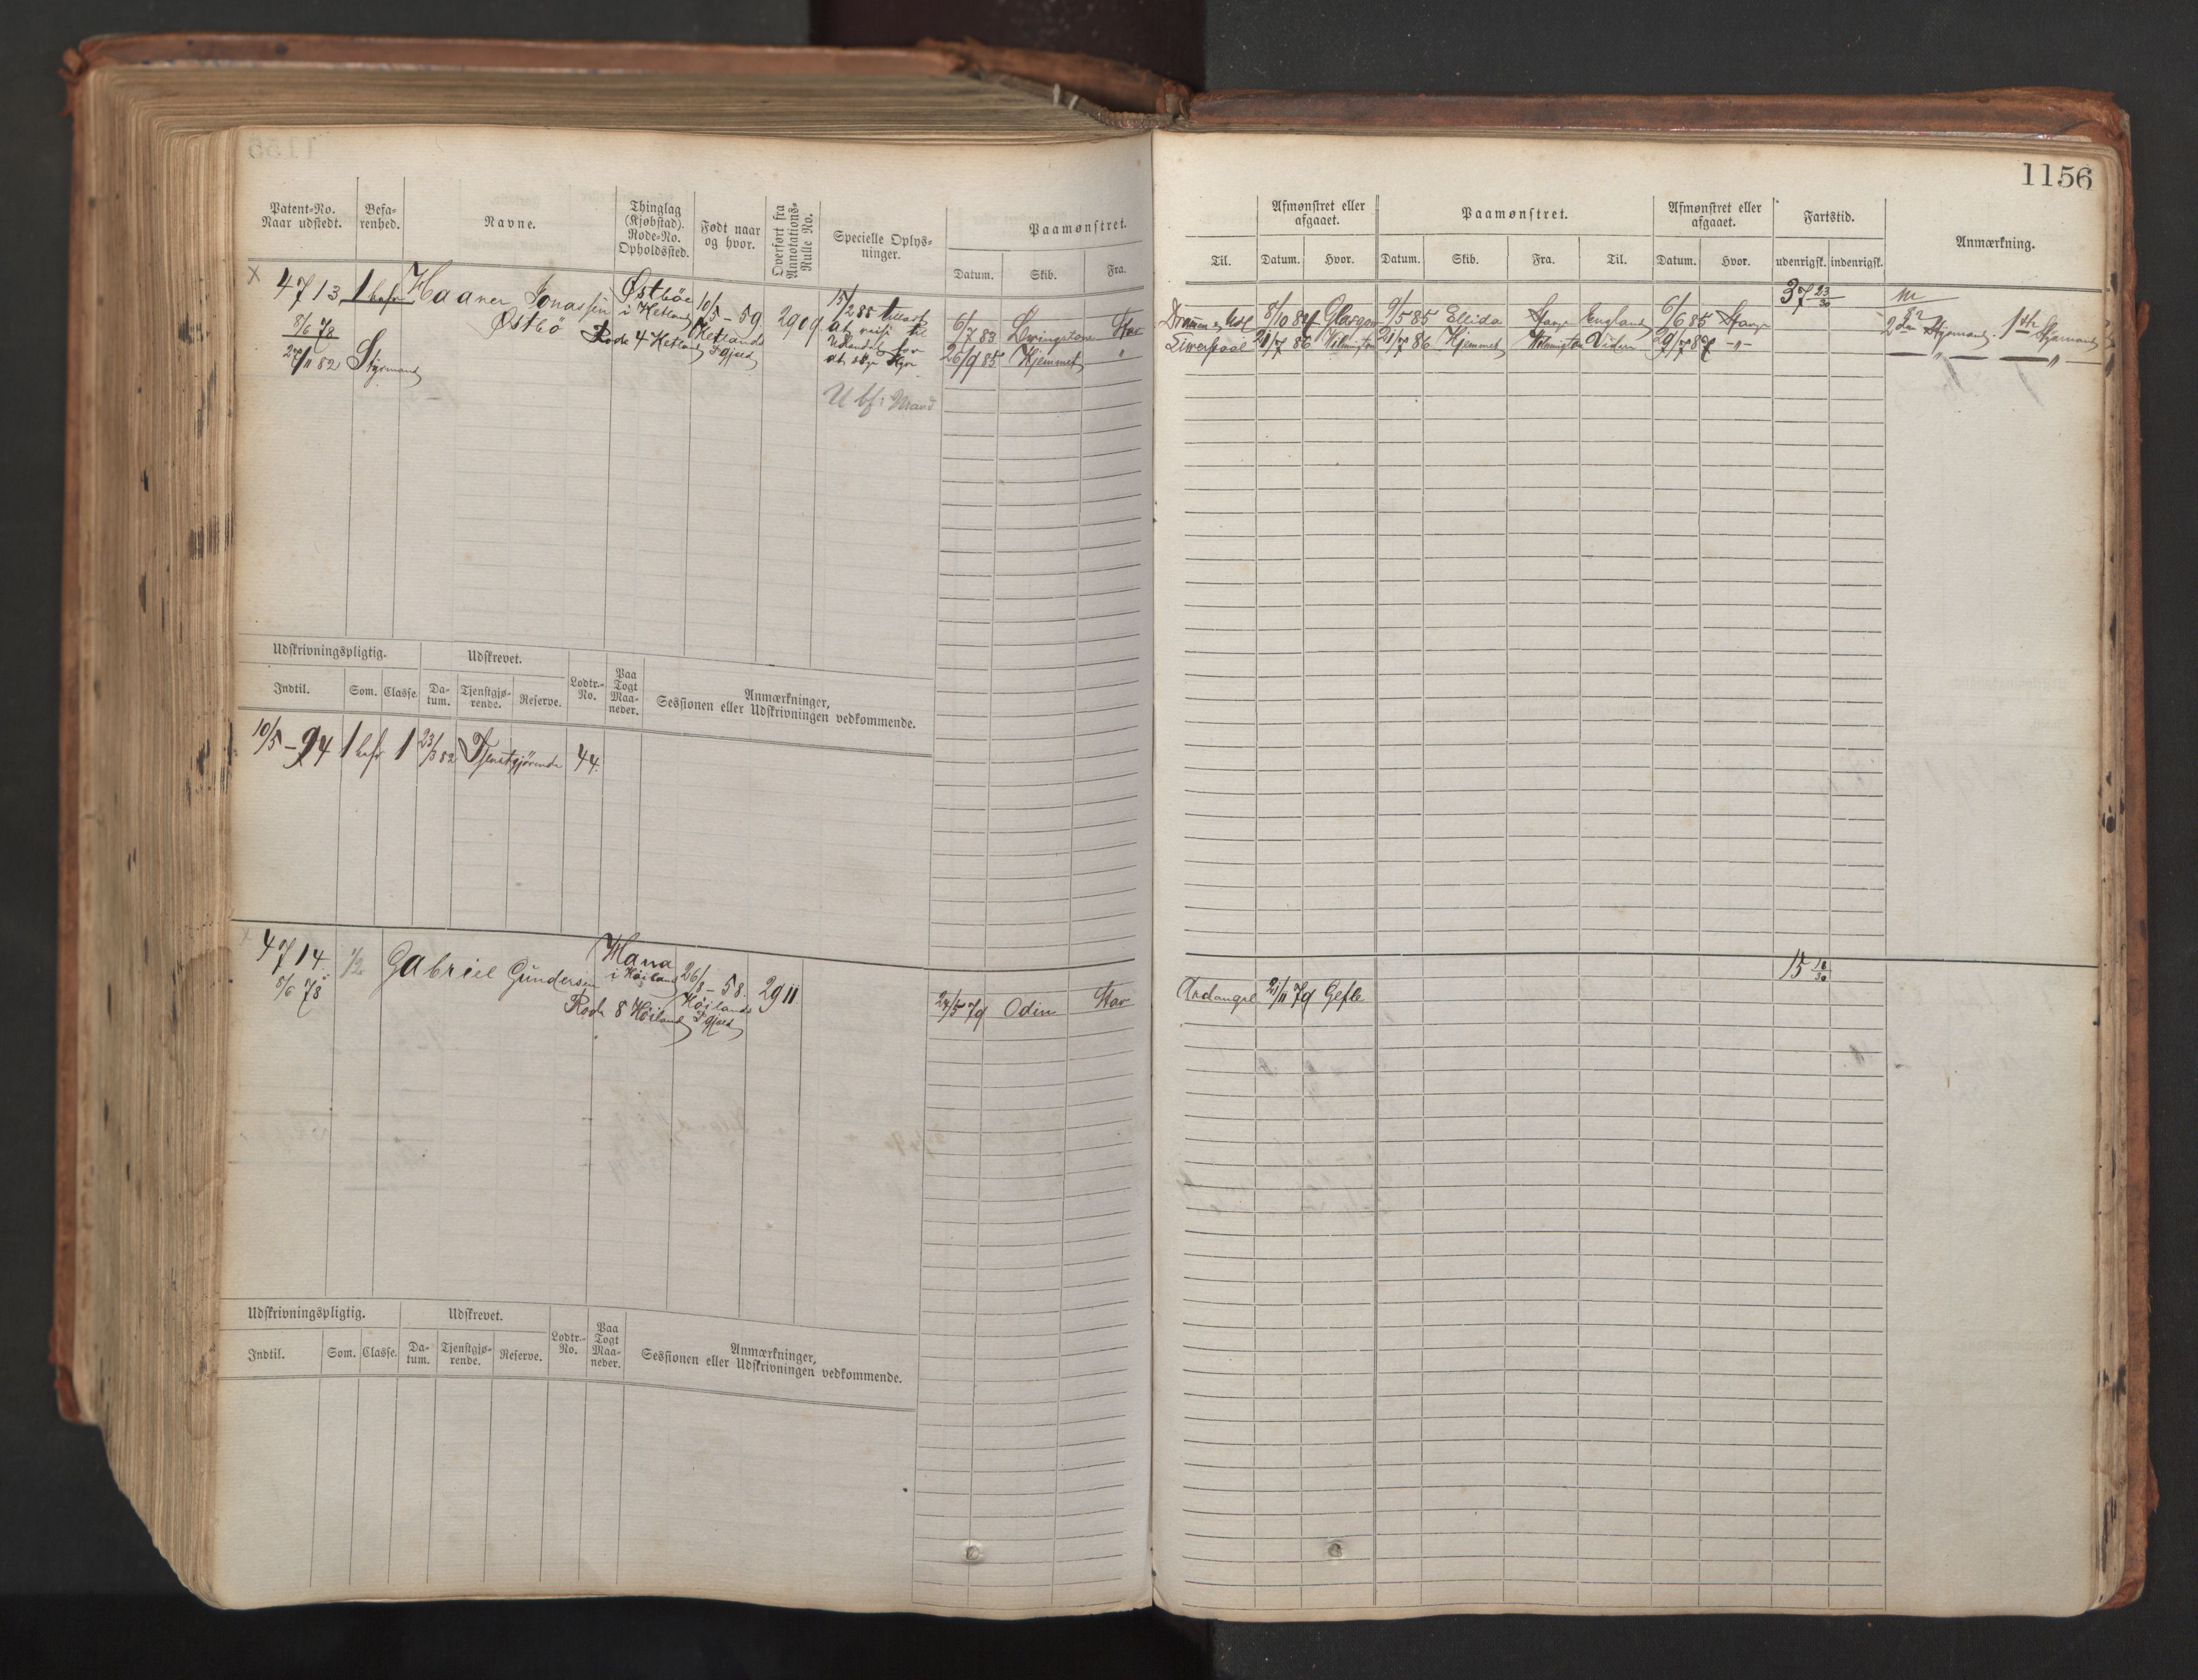 1156
Patent-No. Naar udstedt.
Befarenhed.
Navne.
Thinglag (Kjøbstad). Rode-No. Opholdssted.
Født naar og hvor.
Overført fra Annotations-Rulle No.
Specielle Oplysninger.
Paamønstret.
Datum. Skib. Fra.
Til.
Afmønstret eller afgaaet.
Datum. Hvor.
Paamønstret.
Datum. Skib. Fra. Til.
Afmønstret eller afgaaet.
Datum. Hvor.
Fartstid.
udenrigsk. indenrigsk.
Anmærkning.
4713
8/6 78
27/11 82
1 bef
Styrmand
Haaver Jonassen
Østbö
Østböe
i Hetland
Rode 4 Hetland
10/5 - 59.
Hetlands
Pgjeld
2909.
15/2 85 tilladt
at reise til
Udlandet for
at styr
6/7 83 Livingstone Stav
26/9 85 Hjemmet "
8/10 84 Glasgow 9/5 85 Ellida Stavgr England 6/6 85 Stavgr
Liverpool 21/7 86 Wilmington 21/7 86 Hjemmet Wilmington Viden 29/7 87 -"-
37 23/30
2den Styrmand. 1ste Styrmand
" "
Udskrivningspligtig. Udskrevet. Lodtr.-No. Paa Togt Maaneder. Anmærkninger, Sessionen eller Udskrivningen vedkommende.
Indtil. Som. Classe. Datum. Tjenstgjørende. Reserve.
10/5 - 94 1 bef 1 23/3 82 Tjenstgjörende 44.
4714.
8/6 78
1/2
Gabriel Gundersen
Hana
i Höiland
Rode 8 Höiland
26/8 - 58.
Höilands
Pgjeld
2911
24/5 79 Odin Stav
Archangel 21/11 79 Gefle
15 18/30
Udskrivningspligtig. Udskrevet. Lodtr.-No. Paa Togt Maaneder. Anmærkninger, Sessionen eller Udskrivningen vedkommende.
Indtil. Som. Classe. Datum. Tjenstgjørende. Reserve.